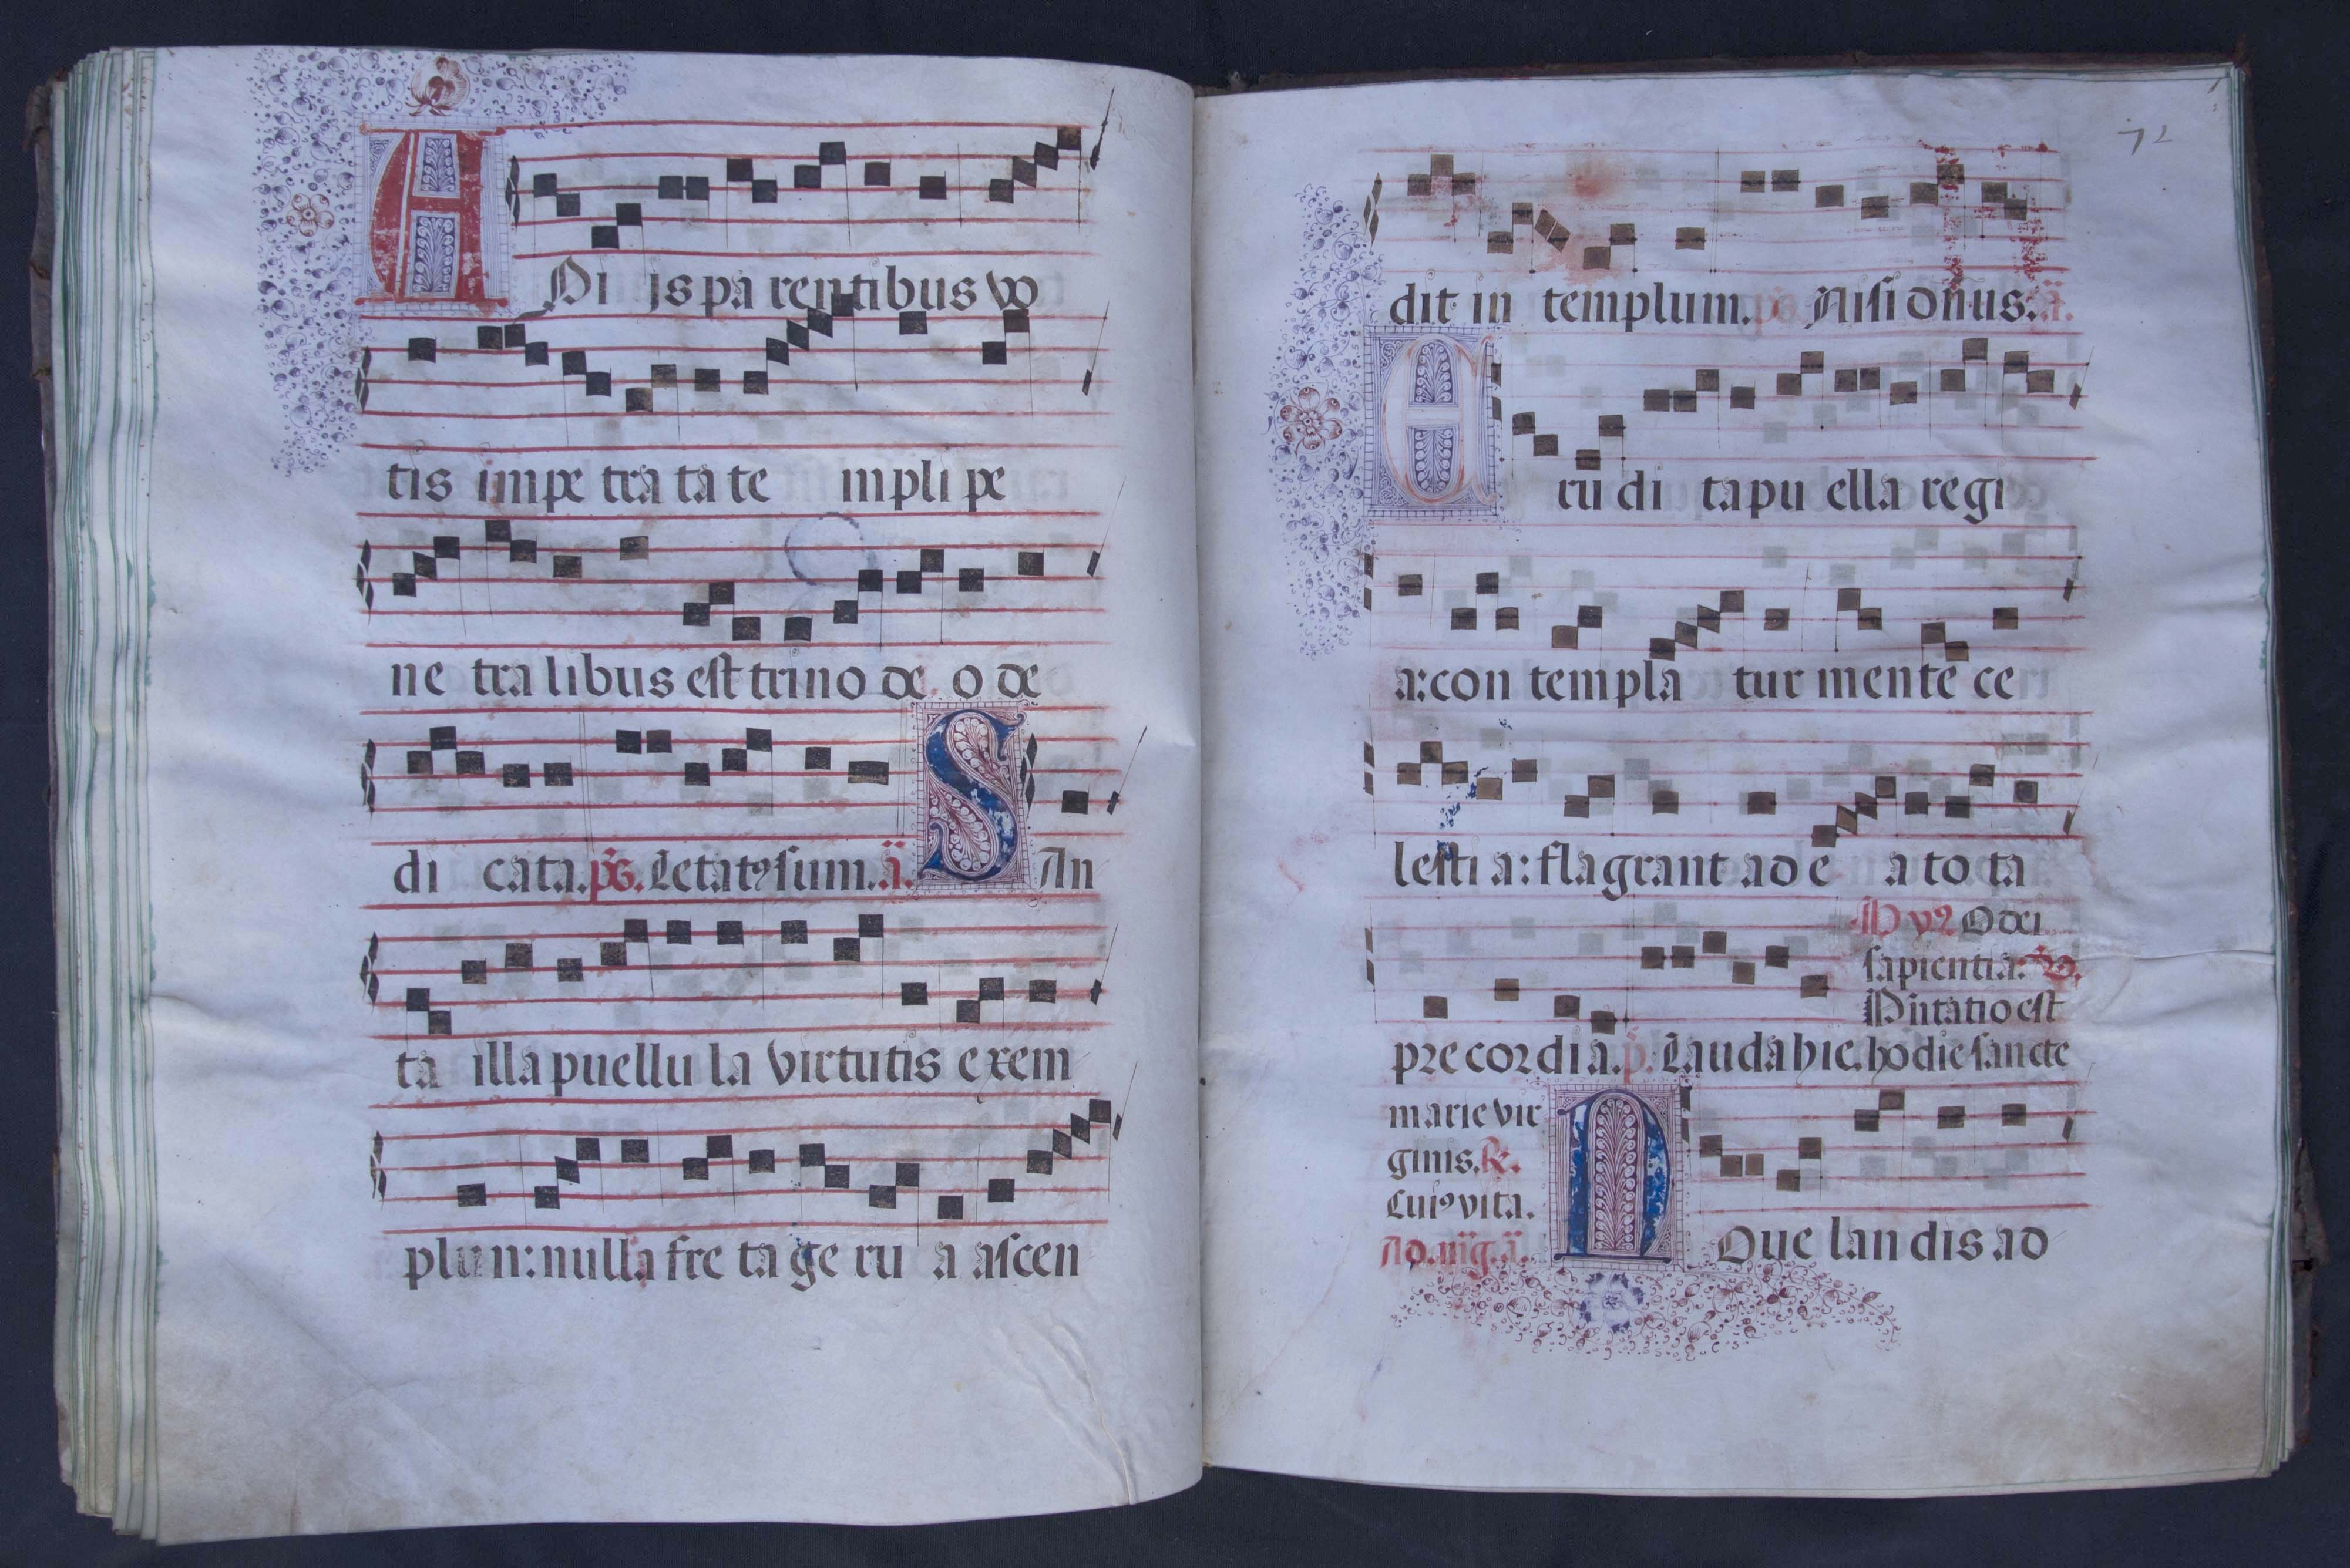 A Di is pa rentibus vo
tis impe tra ta te mpli pe
ne tra libus est trino de o de
di cata. ps. Letat9 sum. a. S An
ta illa puellu la virtutis exem
plu n: nulla fre ta ge ru a ascen
72
dit in templum. ps. Nisi dnus. a.
E ru di ta pu ella regi
a: con templa tur mente ce
lesti a: flagrant ad e a to ta
O dei
sapientia:
precordi a. p. Lauda hie. hodie sancte
marie vir
ginis. R.
Cui9 vita.
Ad. mg. a.
D Que lan dis ad